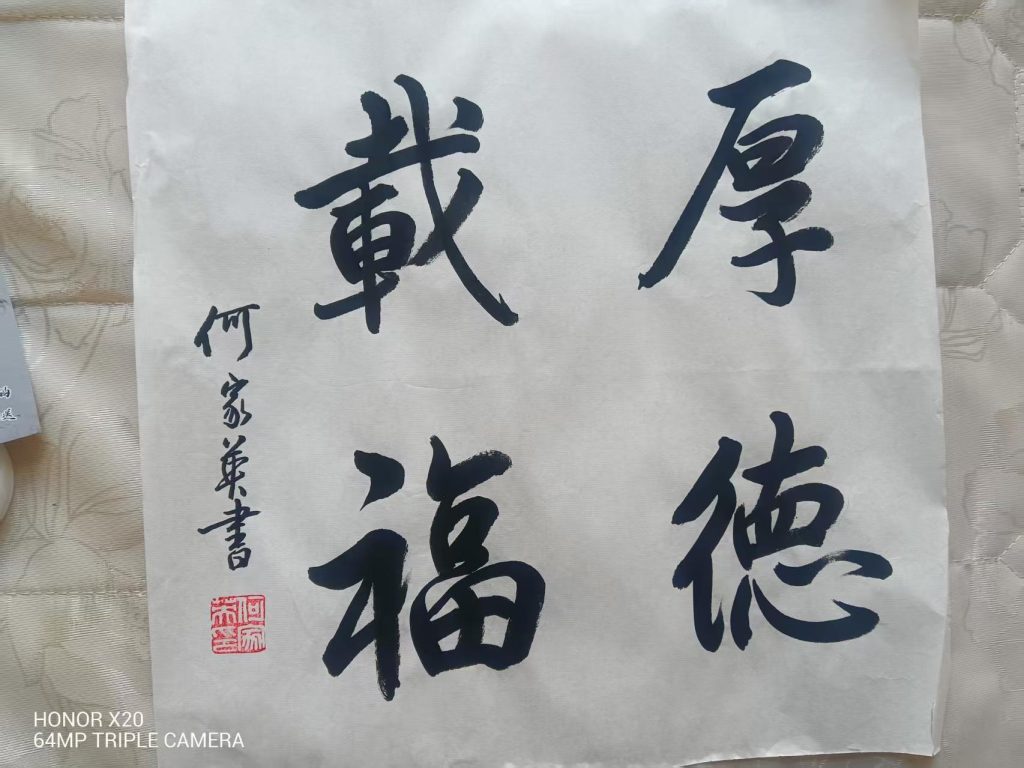 厚德
載福
何家英書
何家英印
HONOR X20
64MP TRIPLE CAMERA